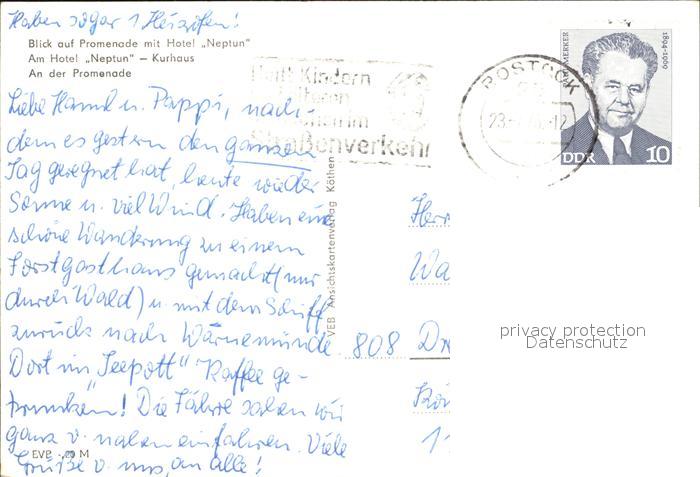 Haben sogar 1 Heizofen!
Blick auf Promenade mit Hotel „Neptun"
Am Hotel „Neptun" – Kurhaus
An der Promenade
Liebe Hanna u. Pappi, nach-
dem es gestern den ganzen
Tag geregnet hat, heute wieder
Sonne u. viel Wind. Haben eine
schöne Wanderung zu einem
Forstgasthaus gemacht (nur
durch Wald) u. mit dem Schiff
zurück nach Warnemünde
Dort im „Teepott" Kaffee ge-
trunken! Die Fähre sahen wir
ganz v. nahem einfahren. Viele
Grüße v. uns, an alle!
EVP -,20 M
VEB Ansichtskartenverlag Köthen
Helft Kindern
Älteren
im
Straßenverkehr
ROSTOCK
25
23.
-12
MERKER
1894-1969
DDR 10
Herr
Wa
808 Dre
Kön
privacy protection
Datenschutz